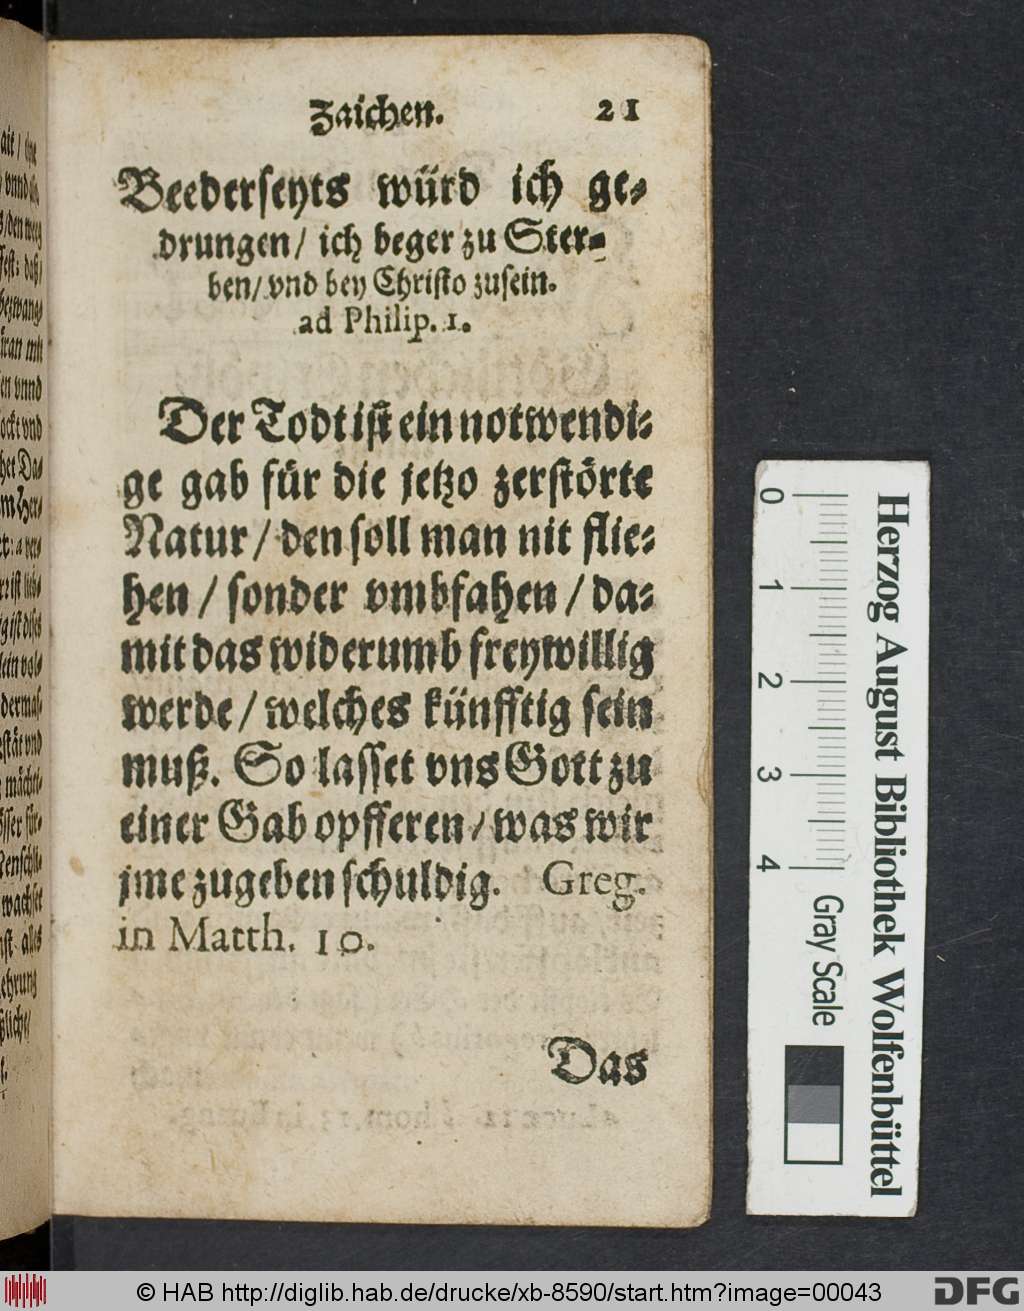 Zaichen. 21
Beederseyts würd ich ge-
drungen/ ich beger zu Ster-
ben/ vnd bey Christo zusein.
ad Philip. 1.
Der Todt ist ein notwendi-
ge gab für die jetzo zerstörte
Natur / den soll man nit flie-
hen / sonder vmbfahen / da-
mit das widerumb freywillig
werde / welches künfftig sein
muß. So lasset vns Gott zu
einer Gab opfferen / was wir
jme zugeben schuldig. Greg.
in Matth. 10.
Das
0 1 2 3 4
Gray Scale
Herzog August Bibliothek Wolfenbüttel
© HAB http://diglib.hab.de/drucke/xb-8590/start.htm?image=00043
DFG